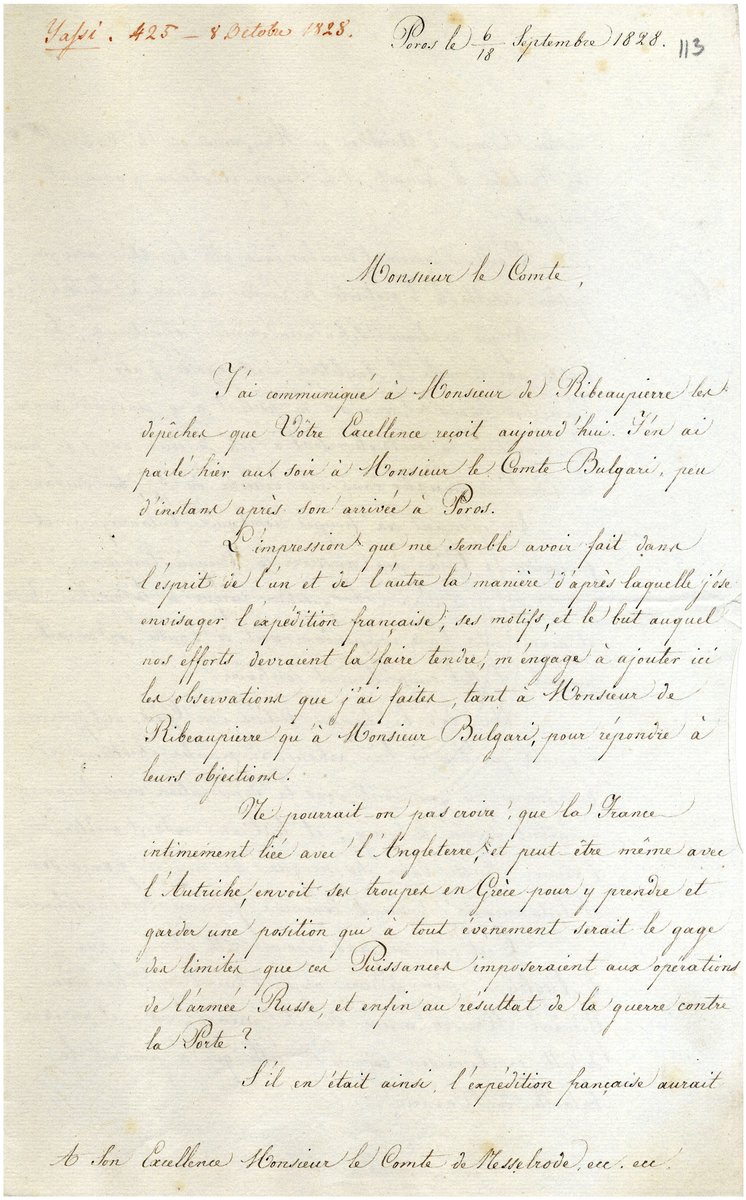 Yassi. 425 – 8 Octobre 1828.
Poros le 6/18 Septembre 1828.
113
Monsieur le Comte,
J'ai communiqué à Monsieur de Ribeaupierre les
dépêches que Vôtre Excellence reçoit aujourd'hui. J'en ai
parlé hier au soir à Monsieur le Comte Bulgari, peu
d'instans après son arrivée à Poros.
L'impression que me semble avoir fait dans
l'ésprit de l'un et de l'autre la manière d'après laquelle j'ose
envisager l'expédition française, ses motifs, et le but auquel
nos efforts devraient la faire tendre, m'engage à ajouter ici
les observations que j'ai faites, tant à Monsieur de
Ribeaupierre qu'à Monsieur Bulgari, pour répondre à
leurs objections.
Ne pourrait-on pas croire, que la France
intimement liée avec l'Angleterre, et peut être même avec
l'Autriche, envoit ses troupes en Grèce pour y prendre et
garder une position qui à tout évènement serait le gage
des limites que ces Puissances imposeraient aux opérations
de l'armée Russe, et enfin au résultat de la guerre contre
la Porte?
S'il en était ainsi, l'expédition française aurait
A Son Excellence Monsieur le Comte de Nesselrode, ecc. ecc.